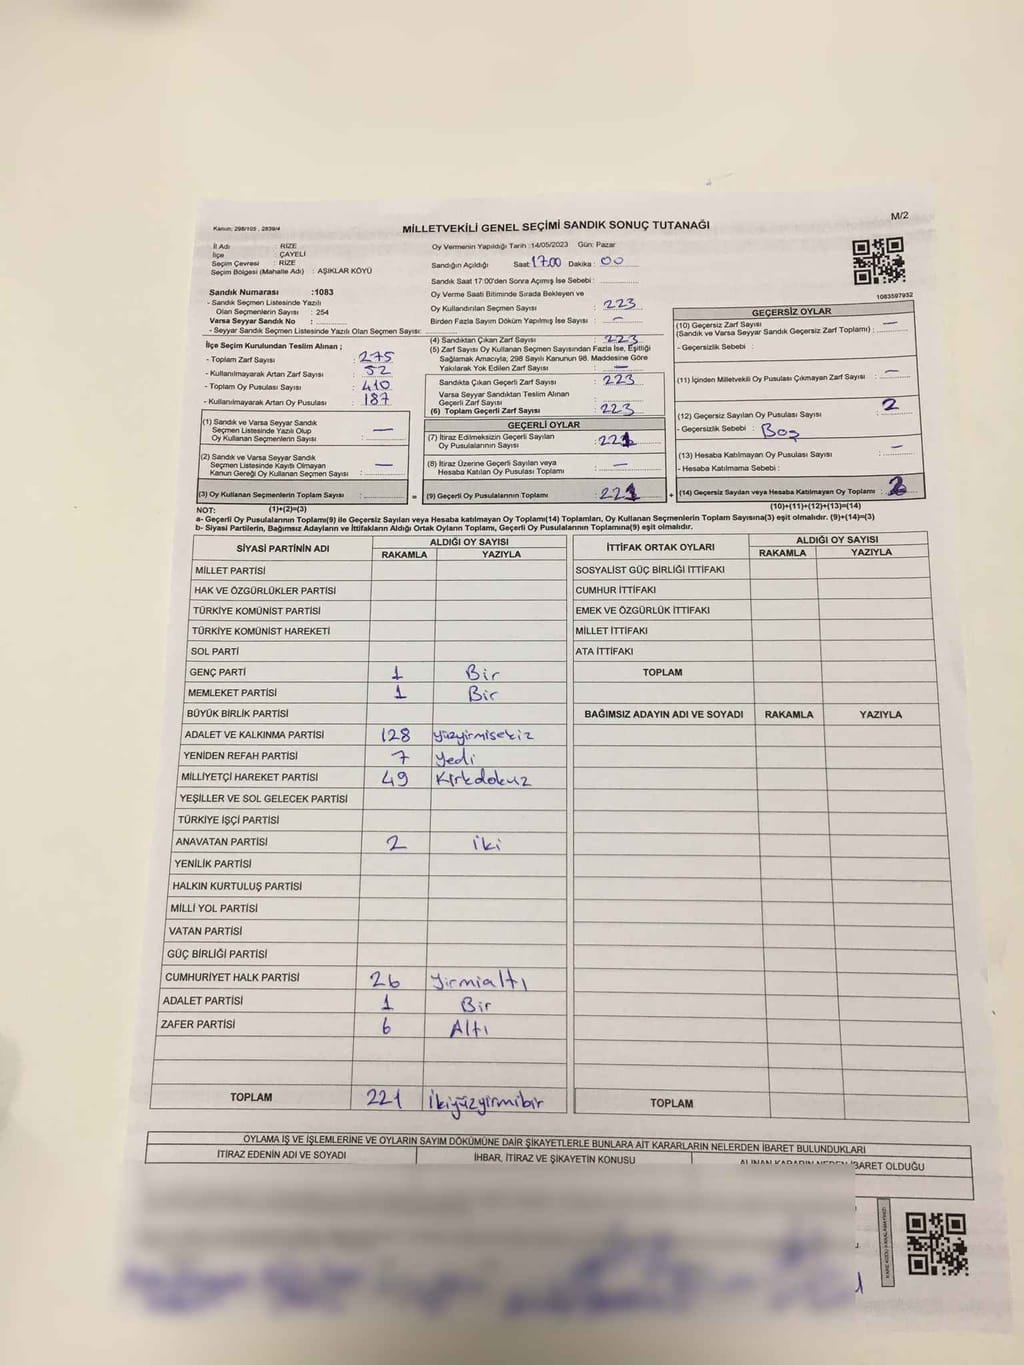 M/2
Kanun: 298/105 , 2839/4
MİLLETVEKİLİ GENEL SEÇİMİ SANDIK SONUÇ TUTANAĞI
İl Adı : RİZE
İlçe : ÇAYELİ
Seçim Çevresi : RİZE
Seçim Bölgesi (Mahalle Adı) : AŞIKLAR KÖYÜ
Sandık Numarası :1083
- Sandık Seçmen Listesinde Yazılı
Olan Seçmenlerin Sayısı : 254
Varsa Seyyar Sandık No :
- Seyyar Sandık Seçmen Listesinde Yazılı Olan Seçmen Sayısı:
Oy Vermenin Yapıldığı Tarih :14/05/2023 Gün: Pazar
Sandığın Açıldığı Saat: 17.00 Dakika : 00
Sandık Saat 17:00'den Sonra Açımış İse Sebebi :
Oy Verme Saati Bitiminde Sırada Bekleyen ve
Oy Kullandırılan Seçmen Sayısı : 223
Birden Fazla Sayım Döküm Yapılmış İse Sayısı : —
1083597932
İlçe Seçim Kurulundan Teslim Alınan ;
- Toplam Zarf Sayısı : 275
- Kullanılmayarak Artan Zarf Sayısı : 52
- Toplam Oy Pusulası Sayısı : 410
- Kullanılmayarak Artan Oy Pusulası : 187
(1) Sandık ve Varsa Seyyar Sandık
Seçmen Listesinde Yazılı Olup
Oy Kullanan Seçmenlerin Sayısı : —
(2) Sandık ve Varsa Seyyar Sandık
Seçmen Listesinde Kayıtlı Olmayan
Kanun Gereği Oy Kullanan Seçmen Sayısı : —
(3) Oy Kullanan Seçmenlerin Toplam Sayısı :
(4) Sandıktan Çıkan Zarf Sayısı : 223
(5) Zarf Sayısı Oy Kullanan Seçmen Sayısından Fazla İse, Eşitliği
Sağlamak Amacıyla; 298 Sayılı Kanunun 98. Maddesine Göre
Yakılarak Yok Edilen Zarf Sayısı : —
Sandıkta Çıkan Geçerli Zarf Sayısı : 223
Varsa Seyyar Sandıktan Teslim Alınan
Geçerli Zarf Sayısı :
(6) Toplam Geçerli Zarf Sayısı : 223
GEÇERLİ OYLAR
(7) İtiraz Edilmeksizin Geçerli Sayılan
Oy Pusulalarının Sayısı : 221
(8) İtiraz Üzerine Geçerli Sayılan veya
Hesaba Katılan Oy Pusulası Toplamı : —
= (9) Geçerli Oy Pusulalarının Toplamı : 221
GEÇERSİZ OYLAR
(10) Geçersiz Zarf Sayısı
(Sandık ve Varsa Seyyar Sandık Geçersiz Zarf Toplamı) : —
- Geçersizlik Sebebi :
(11) İçinden Milletvekili Oy Pusulası Çıkmayan Zarf Sayısı : —
(12) Geçersiz Sayılan Oy Pusulası Sayısı : 2
- Geçersizlik Sebebi : Boş
(13) Hesaba Katılmayan Oy Pusulası Sayısı : —
- Hesaba Katılmama Sebebi :
+ (14) Geçersiz Sayılan veya Hesaba Katılmayan Oy Toplamı : 2
NOT: (1)+(2)=(3) (10)+(11)+(12)+(13)=(14)
a- Geçerli Oy Pusulalarının Toplamı(9) ile Geçersiz Sayılan veya Hesaba katılmayan Oy Toplamı(14) Toplamları, Oy Kullanan Seçmenlerin Toplam Sayısına(3) eşit olmalıdır. (9)+(14)=(3)
b- Siyasi Partilerin, Bağımsız Adayların ve İttifakların Aldığı Ortak Oyların Toplamı, Geçerli Oy Pusulalarının Toplamına(9) eşit olmalıdır.
SİYASİ PARTİNİN ADI ALDIĞI OY SAYISI
RAKAMLA YAZIYLA
MİLLET PARTİSİ
HAK VE ÖZGÜRLÜKLER PARTİSİ
TÜRKİYE KOMÜNİST PARTİSİ
TÜRKİYE KOMÜNİST HAREKETİ
SOL PARTİ
GENÇ PARTİ 1 Bir
MEMLEKET PARTİSİ 1 Bir
BÜYÜK BİRLİK PARTİSİ
ADALET VE KALKINMA PARTİSİ 128 yüzyirmisekiz
YENİDEN REFAH PARTİSİ 7 yedi
MİLLİYETÇİ HAREKET PARTİSİ 49 Kırkdokuz
YEŞİLLER VE SOL GELECEK PARTİSİ
TÜRKİYE İŞÇİ PARTİSİ
ANAVATAN PARTİSİ 2 iki
YENİLİK PARTİSİ
HALKIN KURTULUŞ PARTİSİ
MİLLİ YOL PARTİSİ
VATAN PARTİSİ
GÜÇ BİRLİĞİ PARTİSİ
CUMHURİYET HALK PARTİSİ 26 yirmialtı
ADALET PARTİSİ 1 Bir
ZAFER PARTİSİ 6 Altı
TOPLAM 221 ikiyüzyirmibir
İTTİFAK ORTAK OYLARI ALDIĞI OY SAYISI
RAKAMLA YAZIYLA
SOSYALİST GÜÇ BİRLİĞİ İTTİFAKI
CUMHUR İTTİFAKI
EMEK VE ÖZGÜRLÜK İTTİFAKI
MİLLET İTTİFAKI
ATA İTTİFAKI
TOPLAM
BAĞIMSIZ ADAYIN ADI VE SOYADI RAKAMLA YAZIYLA
TOPLAM
OYLAMA İŞ VE İŞLEMLERİNE VE OYLARIN SAYIM DÖKÜMÜNE DAİR ŞİKAYETLERLE BUNLARA AİT KARARLARIN NELERDEN İBARET BULUNDUKLARI
İTİRAZ EDENİN ADI VE SOYADI İHBAR, İTİRAZ VE ŞİKAYETİN KONUSU ALINAN KARARIN NEDEN İBARET OLDUĞU